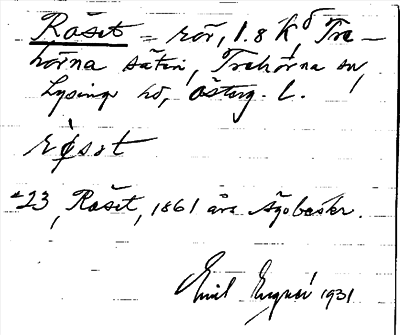 Röset = rör, 1.8 k, Tre-
hörna säteri, Trehörna sn,
Lysings hd, Österg. l.
rösot
-23, Röset, 1861 års Ägobeskr.
Emil 1931